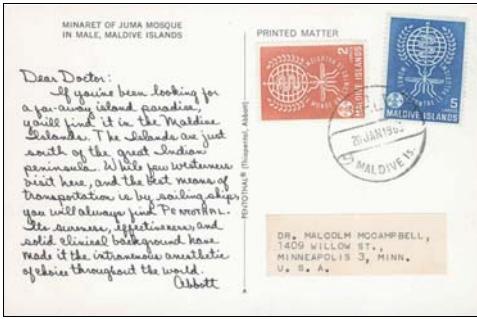 MINARET OF JUMA MOSQUE
IN MALE, MALDIVE ISLANDS
Dear Doctor:
If you've been looking for
a far-away island paradise,
you'll find it in the Maldive
Islands. The Islands are just
south of the great Indian
peninsula. While few westerners
visit here, and the best means of
transportation is by sailing ships,
you will always find PENTOTHAL.
Its sureness, effectiveness and
solid clinical background have
made it the intravenous anesthetic
of choice throughout the world.
Abbott
PENTOTHAL® (Thiopental, Abbott)
PRINTED MATTER
2
MALDIVE ISLANDS
5
MALDIVE ISLANDS
20 JAN 196
MALDIVE IS.
DR. MALCOLM MCCAMPBELL,
1409 WILLOW ST.,
MINNEAPOLIS 3, MINN.
U. S. A.